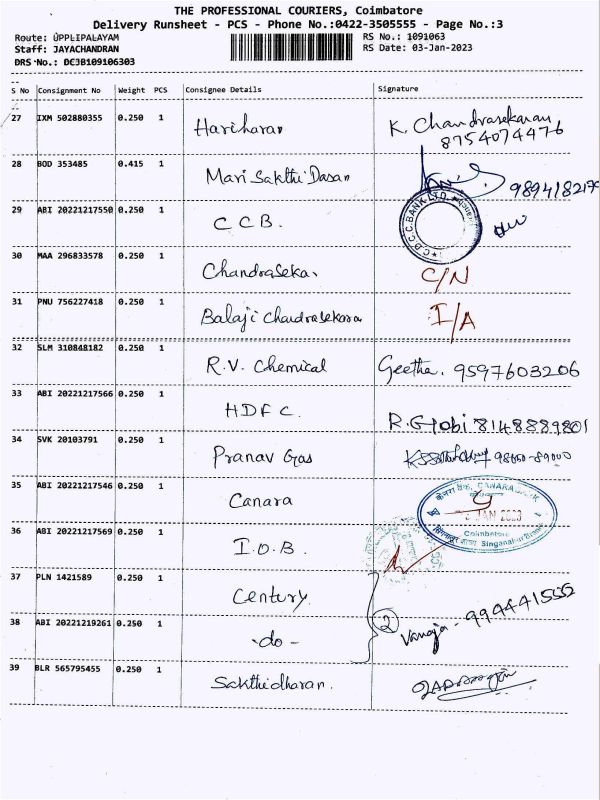 THE PROFESSIONAL COURIERS, Coimbatore
Delivery Runsheet - PCS - Phone No.:0422-3505555 - Page No.:3
Route: UPPLIPALAYAM RS No.: 1091063
Staff: JAYACHANDRAN RS Date: 03-Jan-2023
DRS No.: DCJB109106303
S No Consignment No Weight PCS Consignee Details Signature
27 IXM 502880355 0.250 1 Hariharan K. Chandrasekaran
8754074476
28 BOD 353485 0.415 1 Mari Sakthi Dasan
29 ABI 20221217550 0.250 1 C C B. C.D.C.C.BANK LTD
30 MAA 296833578 0.250 1 Chandrasekar C/N
31 PNU 756227418 0.250 1 Balaji Chandrasekara I/A
32 SLM 310848182 0.250 1 R.V. Chemical Geetha. 9597603206
33 ABI 20221217566 0.250 1 HDFC. R. Gobi 8148889801
34 SVK 20103791 0.250 1 Pranav Gas
35 ABI 20221217546 0.250 1 Canara केनरा बैंक, CANARA BANK
JAN 2023
Coimbatore
Singanallur Branch
36 ABI 20221217569 0.250 1 I.O.B.
37 PLN 1421589 0.250 1 Century
38 ABI 20221219261 0.250 1 -do- 2 Vanaja - 994441552
39 BLR 565795455 0.250 1 Sakthidharan.